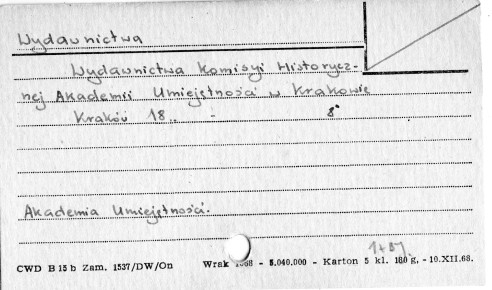 Wydawnictwa
Wydawnictwa Komisyi Historycz-
nej Akademii Umiejętności w Krakowie
Kraków 18.. - 8°
Akademia Umiejętności.
1+37.
CWD B 15 b Zam. 1537/DW/On Wrak 1968 - 5.040.000 - Karton 5 kl. 180 g, - 10.XII.68.